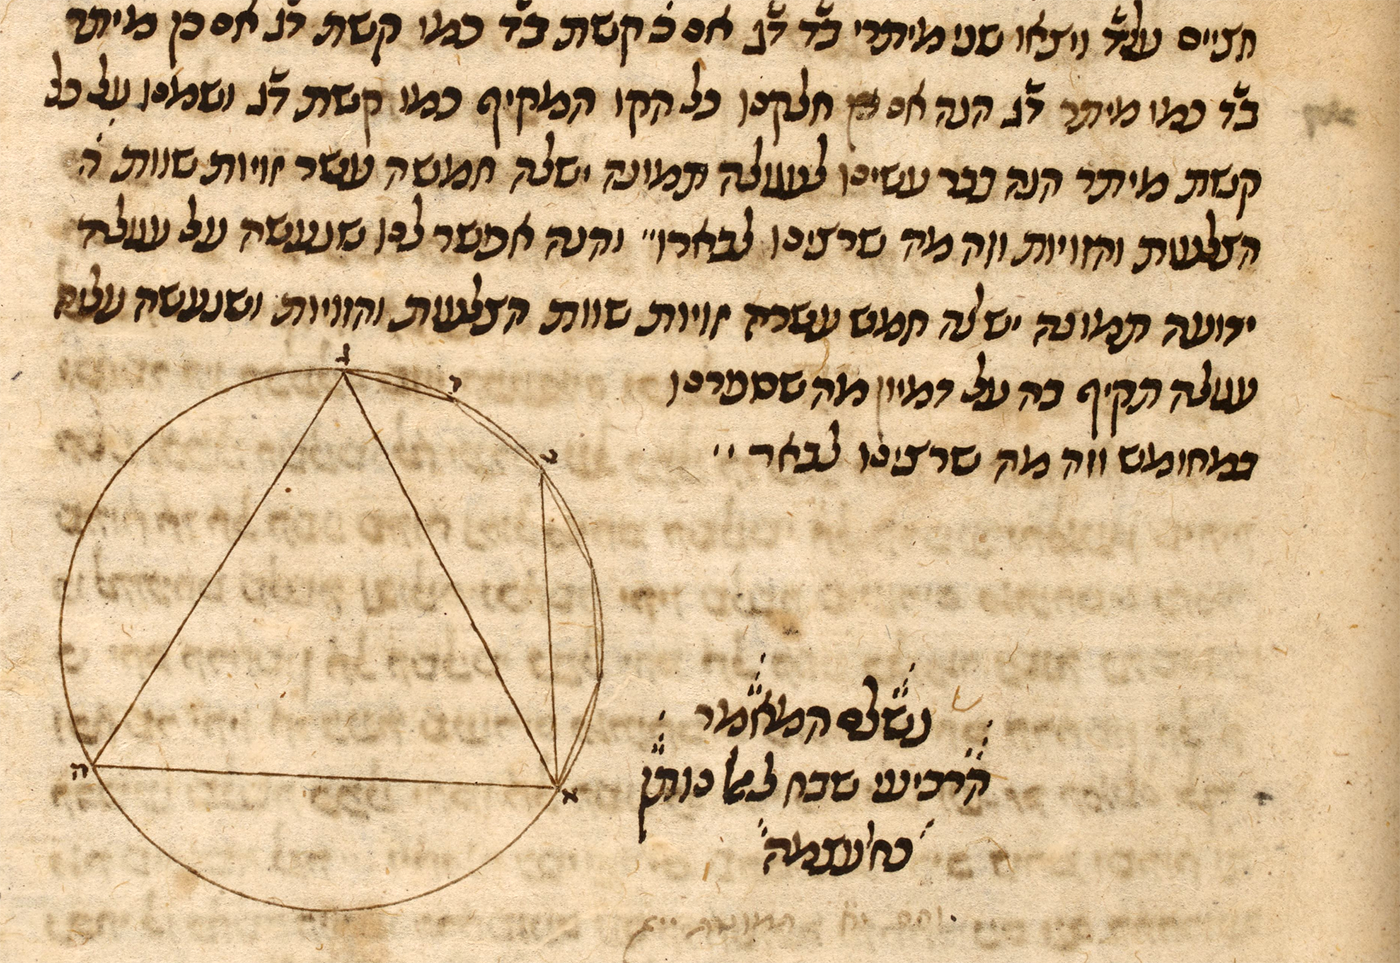 חציים על ד ויצאו שני מיתרי בד דג אם כ קשת בד כמו קשת דג אם כן מיתר
בד כמו מיתר דג הנה אם חלקנו כל הקו המקיף כמו קשת דג ושמנו על כל
קשת מיתר הנה כבר עשינו לעגולה תמונה יש לה חמשה עשר זויות שוות ה
הצלעות והזויות וזה מה שרצינו לבארו והנה אפשר לנו שנעשה על עגולה
ידועה תמונה יש לה חמש עשרה זויות שוות הצלעות והזויות ושנעשה עליה
עגולה תקיף בה על דמיון מה שספרנו
במחומש וזה מה שרצינו לבאר
ג
ד
ב
ה
א
נשלם המאמר
הרביעי שבח לאל נותן
כח ועצמה